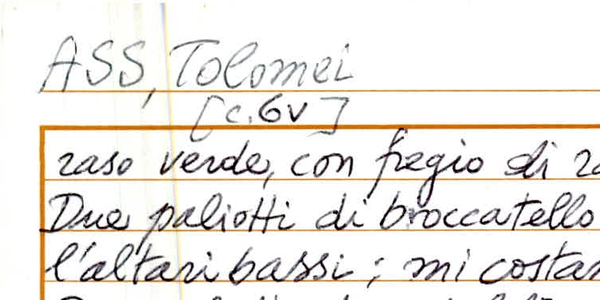 ASS, Tolomei
[c. 6v]
raso verde, con fregio di
Due paliotti di broccatello
l'altari bassi; mi costan